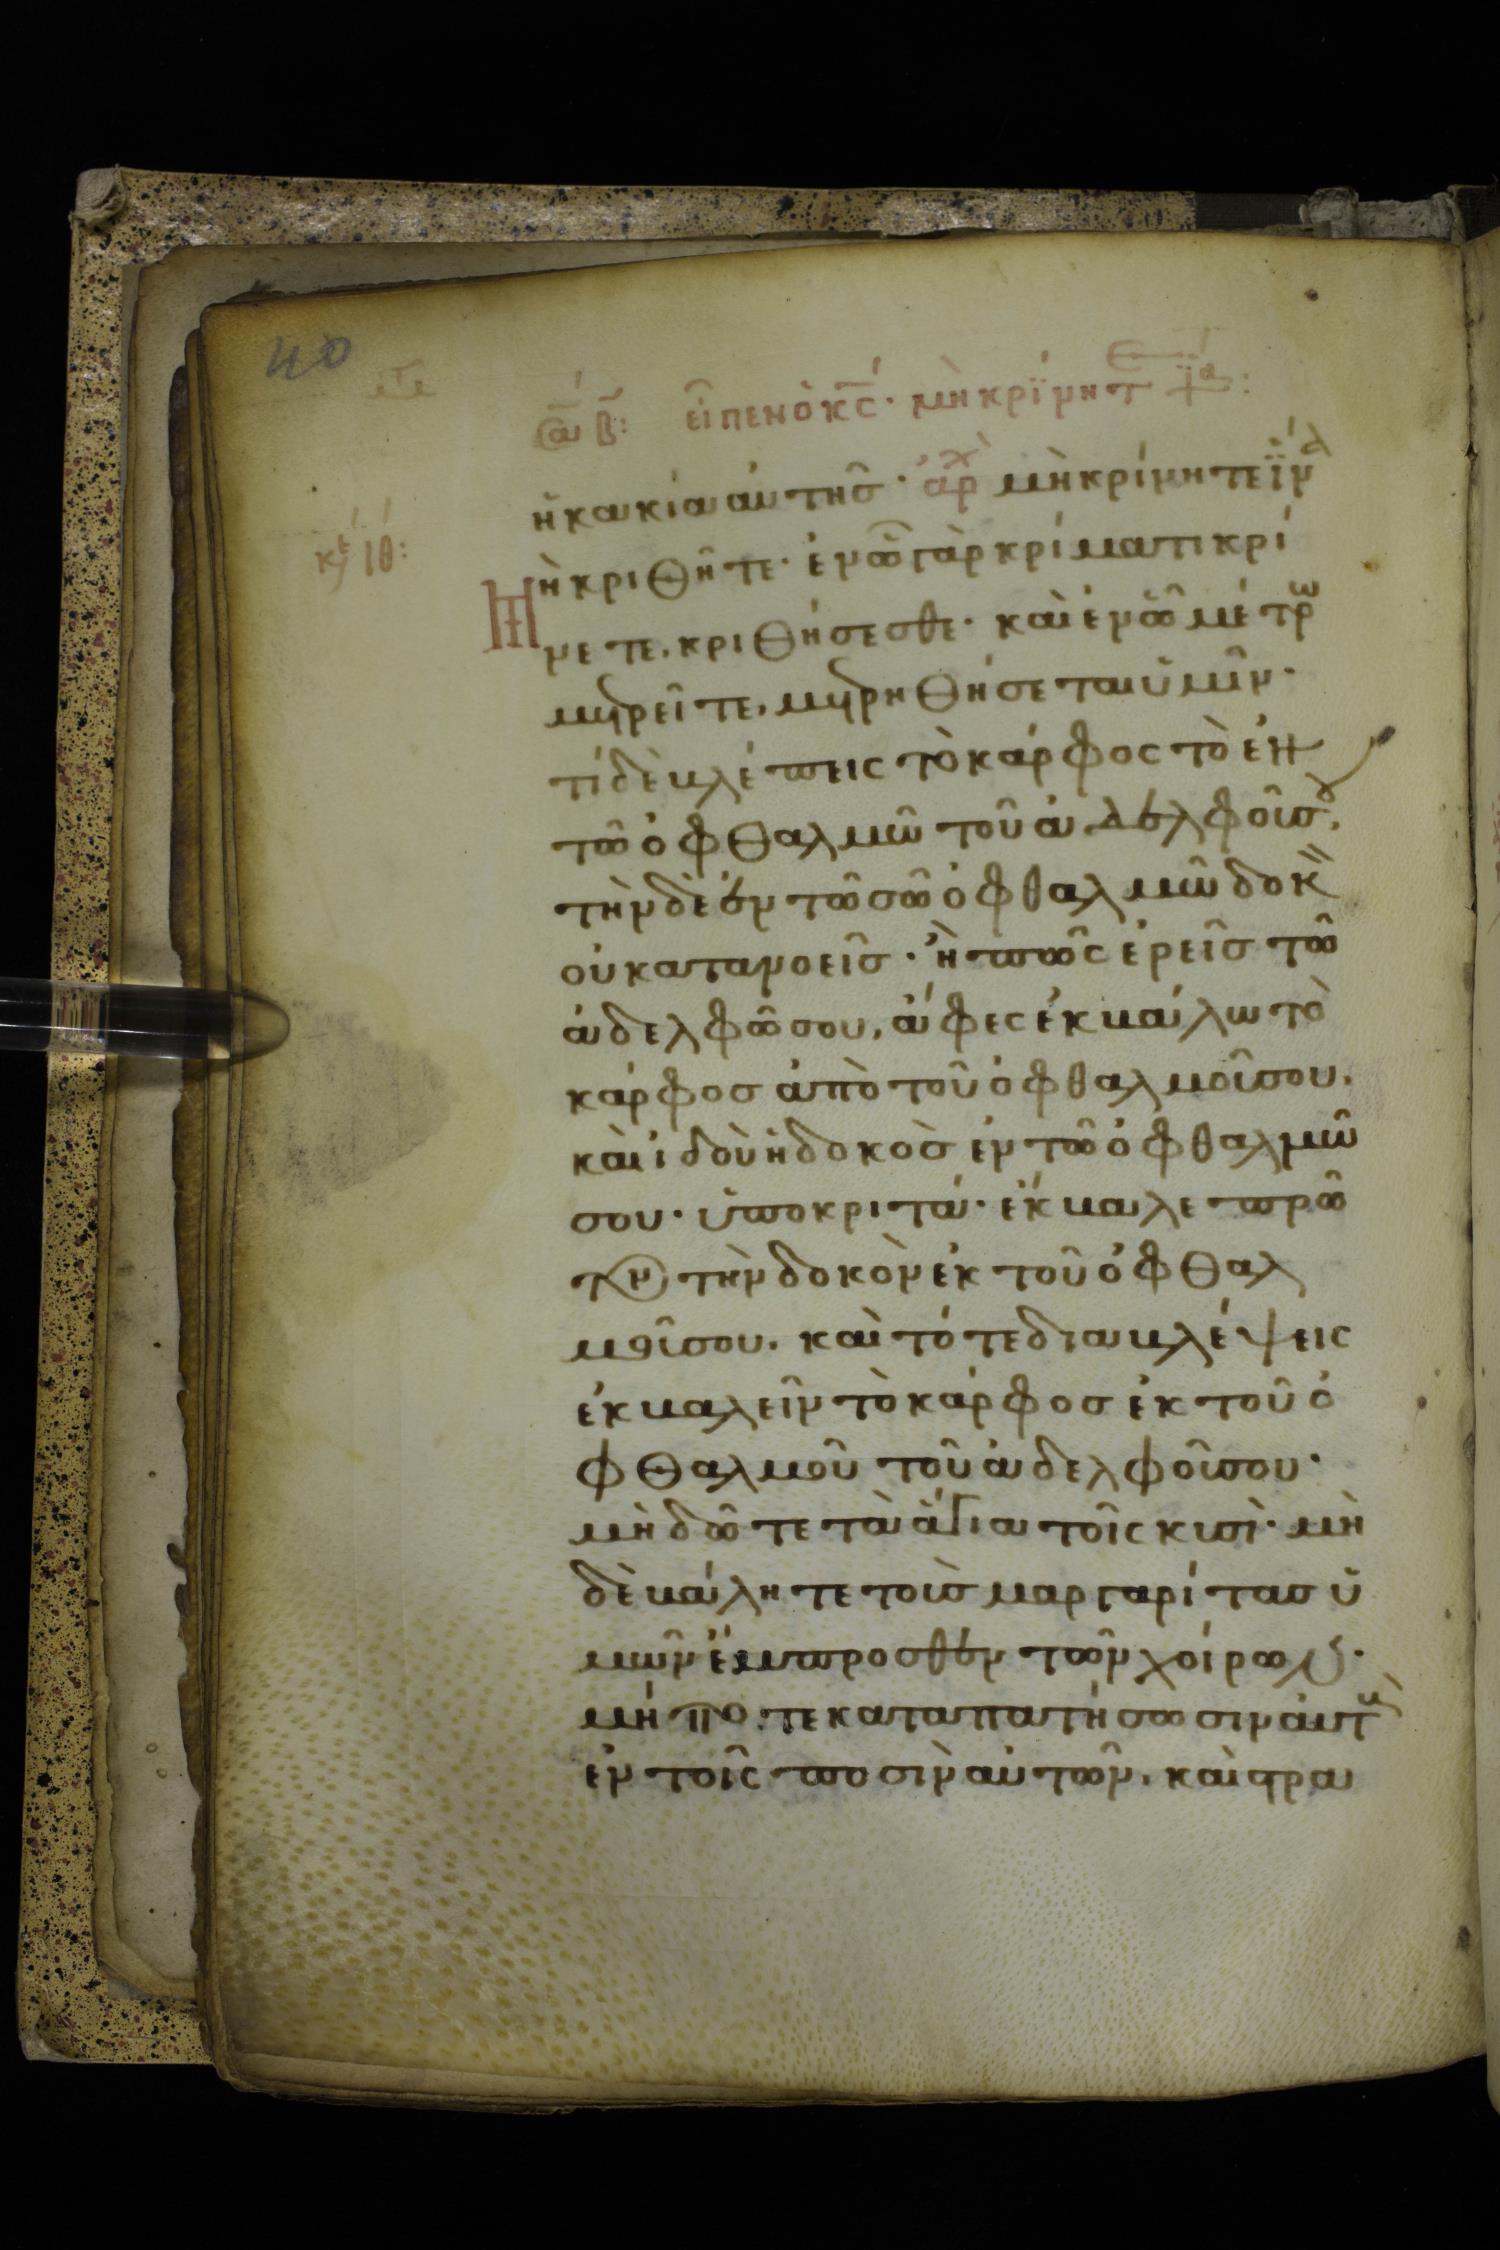 40
εἶπεν ὁ κς· μὴ κρίνητ
ἡ κακία αὐτῆς· ἀρχ μὴ κρίνητε ἵνα
κε ιθ:
μὴ κριθῆτε· ἐν ᾧ γὰρ κρίματι κρί
νετε, κριθήσεσθε· καὶ ἐν ᾧ μέτρω
μετρεῖτε, μετρηθήσεται ὑμῖν·
τί δὲ βλέπεις τὸ κάρφος τὸ ἐν
τῶ ὀφθαλμῶ τοῦ ἀδελφοῦ σου,
τὴν δὲ ἐν τῶ σῶ ὀφθαλμῶ δοκὸν
οὐ κατανοεῖς· ἢ πῶς ἐρεῖς τῶ
ἀδελφῶ σου, ἄφες ἐκβάλω τὸ
κάρφος ἀπὸ τοῦ ὀφθαλμοῦ σου,
καὶ ἰδοὺ ἡ δοκὸς ἐν τῶ ὀφθαλμῶ
σου· ὑποκριτά· ἔκβαλε πρῶ
τον τὴν δοκὸν ἐκ τοῦ ὀφθαλ
μοῦ σου, καὶ τότε διαβλέψεις
ἐκβαλεῖν τὸ κάρφος ἐκ τοῦ ὀ
φθαλμοῦ τοῦ ἀδελφοῦ σου·
μὴ δῶτε τὰ ἅγια τοῖς κυσὶ· μὴ
δὲ βάλητε τοὺς μαργαρίτας ὑ
μῶν ἔμπροσθεν τῶν χοίρων·
μήποτε καταπατήσωσιν αὐτοὺς
ἐν τοῖς ποσὶν αὐτῶν, καὶ στρα